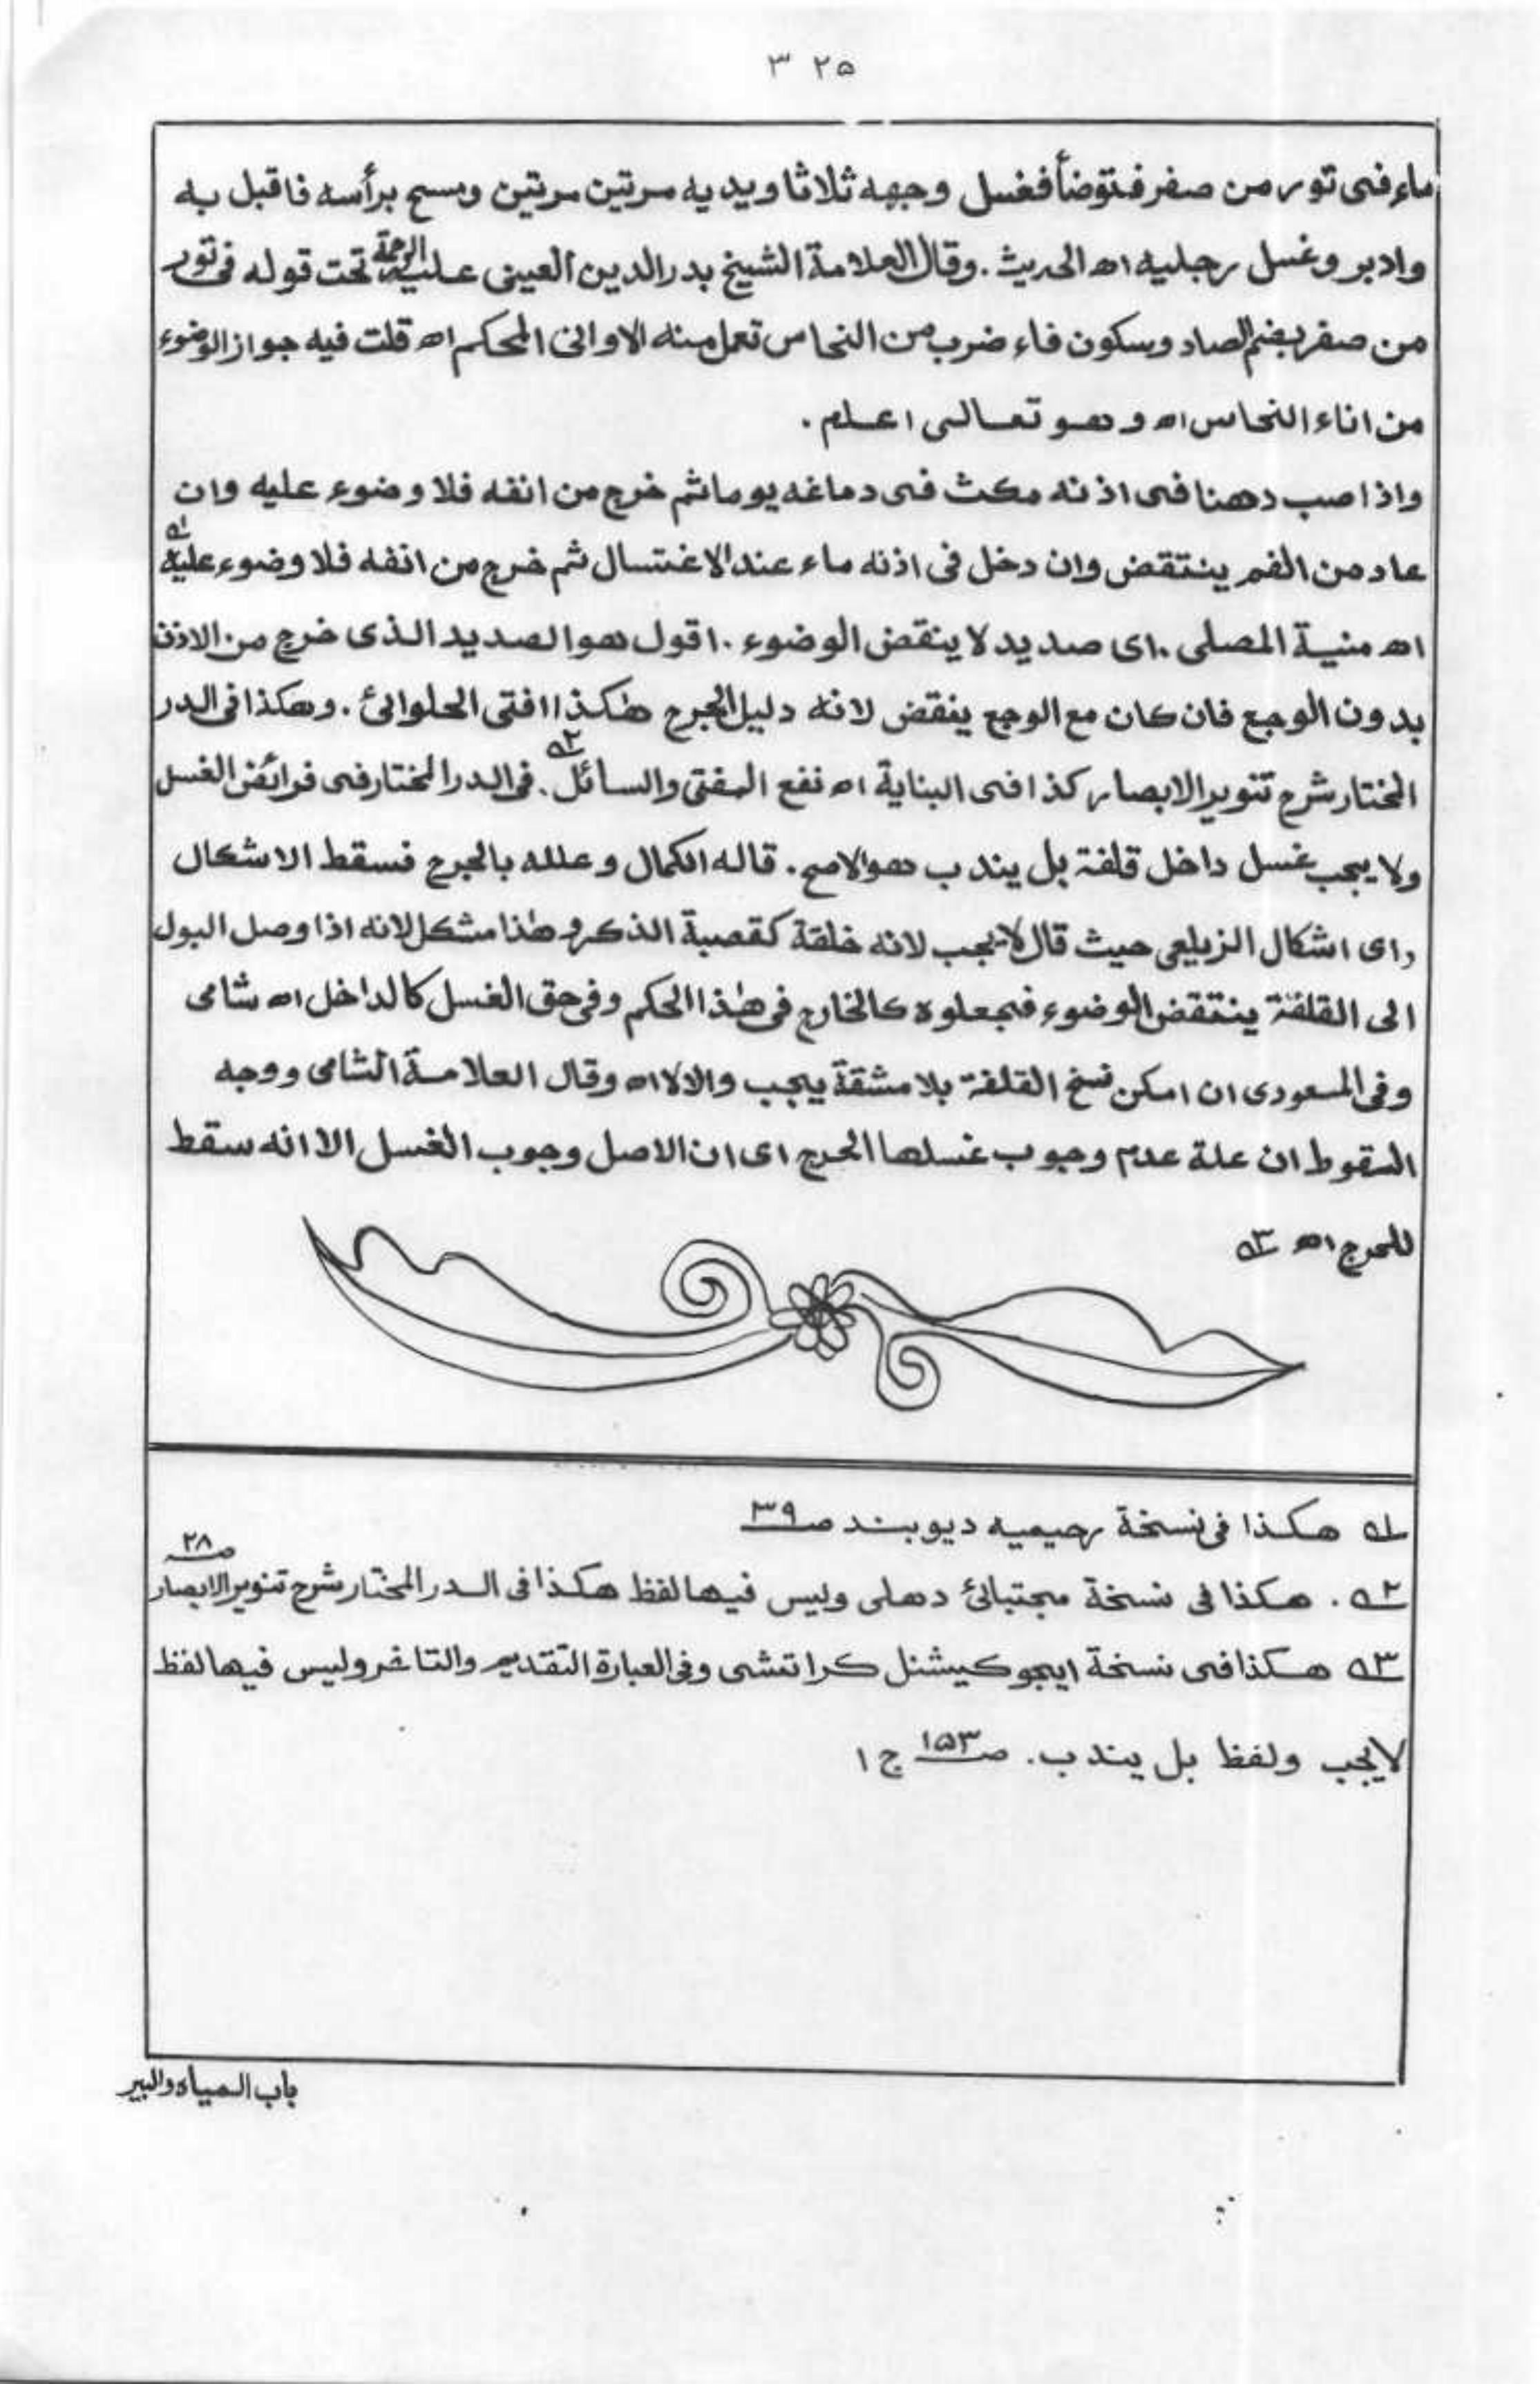 ٣ ٢۵
ماء فى تور من صفر فتوضأ فغسل وجهه ثلاثا ويديه مرتين مرتين ومسح برأسه فاقبل به
وادبر وغسل رجليه اھ الحديث . وقال العلامة الشيخ بدر الدين العينى عليه الرحمة تحت قوله فى تور
من صفر بضم الصاد وسكون فاء ضرب من النحاس تعمل منه الاوانى المحكم اھ قلت فيه جواز الوضوء
من اناء النحاس اھ وهو تعالى اعلم .
واذا صب دهنا فى اذنه مكث فى دماغه يوما ثم خرج من انفه فلا وضوء عليه وان
عاد من الفم ينتقض وان دخل فى اذنه ماء عند الاغتسال ثم خرج من انفه فلا وضوء عليه ١ه
اھ منية المصلى . اى صديد لا ينقض الوضوء . اقول هو الصديد الذى خرج من الاذن
بدون الوجع فان كان مع الوجع ينقض لانه دليل الجرح هٰكذا افتى الحلوائى . وهكذا فى الدر
المختار شرح تنوير الابصار كذا فى البناية اھ نفع المفتى والسائل ٢ه . فى الدر المختار فى فرائض الغسل
ولا يجب غسل داخل قلفة بل يندب هو الاصح . قاله الكمال وعلله بالحرج فسقط الاشكال
راى اشكال الزيلعى حيث قال لا يجب لانه خلقة كقصبة الذكر وهٰذا مشكل لانه اذا وصل البول
الى القلفة ينتقض الوضوء فجعلوه كالخارج فى هٰذا الحكم وفى حق الغسل كالداخل اھ شامى
وفى المسعودى ان امكن نسخ القلفة بلا مشقة يجب والا لا اھ وقال العلامة الشامى ووجه
السقوط ان علة عدم وجوب غسلها الحرج اى ان الاصل وجوب الغسل الا انه سقط
للحرج اھ ٣ه
١ه هكذا فى نسخة رحيميه ديوبند صـ٣٩
٢ه . هكذا فى نسخة مجتبائى دهلى وليس فيها لفظ هكذا فى الدر المختار شرح تنوير الابصار صـ٢٨
٣ه هكذا فى نسخة ايجوكيشنل كراتشى وفى العبارة التقديم والتاخر وليس فيها لفظ
لا يجب ولفظ بل يندب . صـ١۵٣ ج ١
باب المياه والبير